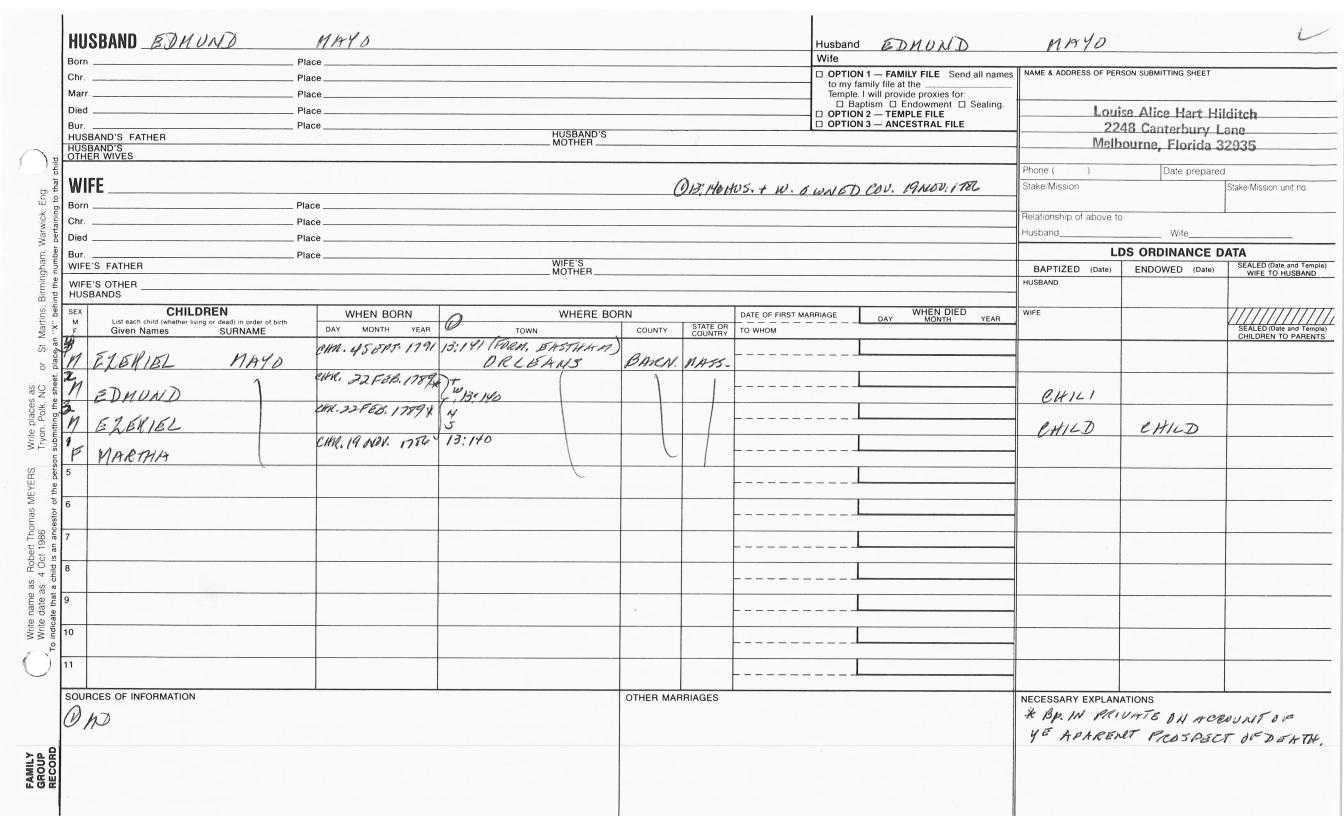 HUSBAND EDMUND MAYO
Born Place
Chr. Place
Marr. Place
Died Place
Bur. Place
HUSBAND'S FATHER HUSBAND'S MOTHER
HUSBAND'S OTHER WIVES
Husband EDMUND MAYO
Wife
OPTION 1 — FAMILY FILE Send all names
to my family file at the
Temple. I will provide proxies for:
Baptism Endowment Sealing.
OPTION 2 — TEMPLE FILE
OPTION 3 — ANCESTRAL FILE
NAME & ADDRESS OF PERSON SUBMITTING SHEET
Louise Alice Hart Hilditch
2248 Canterbury Lane
Melbourne, Florida 32935
Phone ( ) Date prepared
Stake/Mission Stake/Mission unit no.
Relationship of above to
Husband Wife
WIFE ① 13:140 HUS. + W. OWNED COV. 19 NOV. 1786
Born Place
Chr. Place
Died Place
Bur. Place
WIFE'S FATHER WIFE'S MOTHER
WIFE'S OTHER HUSBANDS
LDS ORDINANCE DATA
BAPTIZED (Date) ENDOWED (Date) SEALED (Date and Temple) WIFE TO HUSBAND
HUSBAND
WIFE
SEALED (Date and Temple) CHILDREN TO PARENTS
SEX M F
CHILDREN
List each child (whether living or dead) in order of birth
Given Names SURNAME
WHEN BORN
DAY MONTH YEAR
WHERE BORN
① TOWN COUNTY STATE OR COUNTRY
DATE OF FIRST MARRIAGE
TO WHOM
WHEN DIED
DAY MONTH YEAR
4 M EZEKIEL MAYO CHR. 4 SEPT. 1791 13:141 (FORM. EASTHAM) ORLEANS BARN. MASS.
2 M EDMUND CHR. 22 FEB. 1789* 13:140 CHILD
3 M EZEKIEL CHR. 22 FEB. 1789* CHILD CHILD
1 F MARTHA CHR. 19 NOV. 1786 13:140
5
6
7
8
9
10
11
SOURCES OF INFORMATION
①
OTHER MARRIAGES
NECESSARY EXPLANATIONS
* BP. IN PRIVATE ON ACCOUNT OF
YE APARENT PROSPECT OF DEATH.
Write name as: Robert Thomas MEYERS Write places as: Tryon, Polk, NC or St. Martins, Birmingham, Warwick, Eng.
Write date as: 4 Oct 1986
To indicate that a child is an ancestor of the person submitting the sheet, place an "X" behind the number pertaining to that child.
FAMILY
GROUP
RECORD